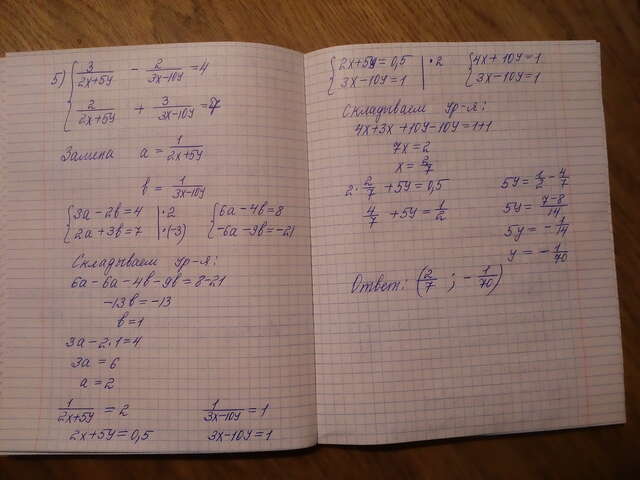 5) { 3/(2x+5y) - 2/(3x-10y) = 4
2/(2x+5y) + 3/(3x-10y) = 7
Замена a = 1/(2x+5y)
b = 1/(3x-10y)
{ 3a-2b=4 |·2 { 6a-4b=8
2a+3b=7 |·(-3) -6a-9b=-21
Складываем ур-я:
6a-6a-4b-9b=8-21
-13b=-13
b=1
3a-2·1=4
3a=6
a=2
1/(2x+5y) = 2 1/(3x-10y) = 1
2x+5y=0,5 3x-10y=1
{ 2x+5y=0,5 |·2 { 4x+10y=1
3x-10y=1 | 3x-10y=1
Складываем ур-я:
4x+3x+10y-10y=1+1
7x=2
x=2/7
2·2/7+5y=0,5 5y=1/2-4/7
4/7+5y=1/2 5y=(7-8)/14
5y=-1/14
y=-1/70
Ответ: (2/7; -1/70)